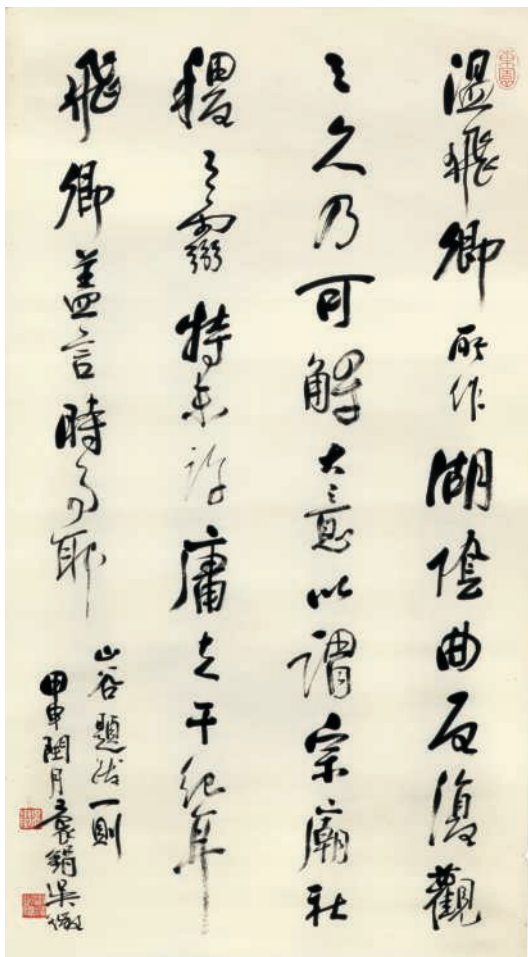 温飛卿所作湖陰曲反復觀
之久乃可解大意以謂宗廟社
稷之靈特未許庸夫干紀耳
飛卿蓋言時事耶
山谷題跋一則
甲申閏月吳